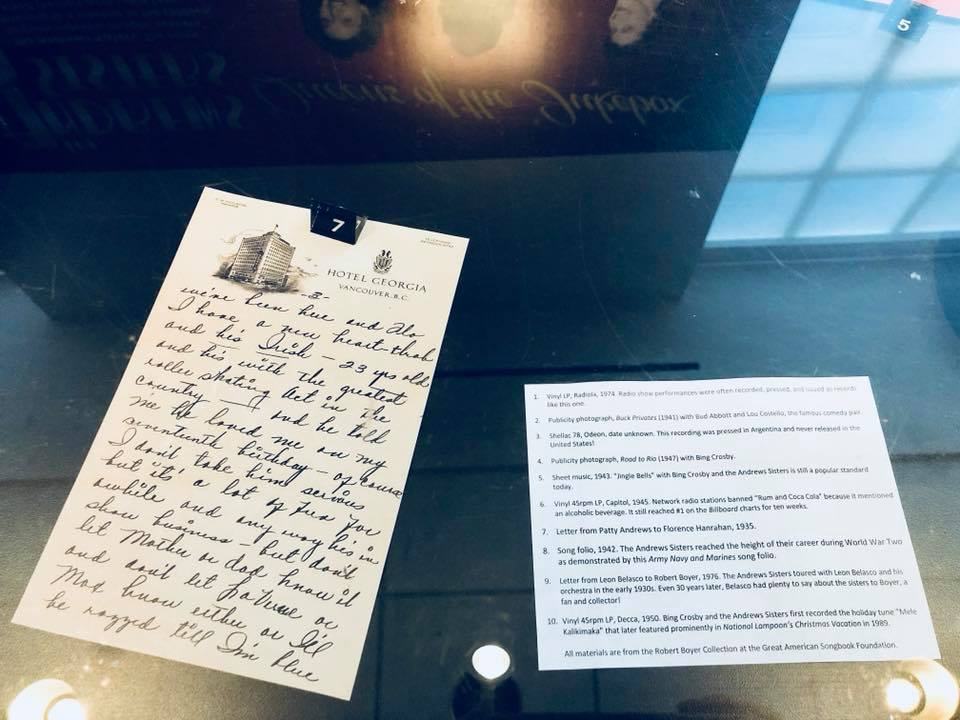 ANDREWS
SISTERS
Queens of the Jukebox
5
7
HOTEL GEORGIA
VANCOUVER, B.C.
we've been here and Flo
I have a new heart-throb
and his Irish — 23 yrs old
and his with the greatest
roller skating Act in the
country — and he told
me he loved me on my
seventeenth birthday — of course
I don't take him serious
but "it's" a lot of fun for
awhile and any way his in
show business — but don't
let Mother or dad know it
and don't let LaVerne or
Max know either or I'll
be razzed till I'm blue
1. Vinyl LP, Radiola, 1974. Radio show performances were often recorded, pressed, and issued as records
like this one.
2. Publicity photograph, Buck Privates (1941) with Bud Abbott and Lou Costello, the famous comedy pair.
3. Shellac 78, Odeon, date unknown. This recording was pressed in Argentina and never released in the
United States!
4. Publicity photograph, Road to Rio (1947) with Bing Crosby.
5. Sheet music, 1943. "Jingle Bells" with Bing Crosby and the Andrews Sisters is still a popular standard
today.
6. Vinyl 45rpm LP, Capitol, 1945. Network radio stations banned "Rum and Coca Cola" because it mentioned
an alcoholic beverage. It still reached #1 on the Billboard charts for ten weeks.
7. Letter from Patty Andrews to Florence Hanrahan, 1935.
8. Song folio, 1942. The Andrews Sisters reached the height of their career during World War Two
as demonstrated by this Army Navy and Marines song folio.
9. Letter from Leon Belasco to Robert Boyer, 1976. The Andrews Sisters toured with Leon Belasco and his
orchestra in the early 1930s. Even 30 years later, Belasco had plenty to say about the sisters to Boyer, a
fan and collector!
10. Vinyl 45rpm LP, Decca, 1950. Bing Crosby and the Andrews Sisters first recorded the holiday tune "Mele
Kalikimaka" that later featured prominently in National Lampoon's Christmas Vacation in 1989.
All materials are from the Robert Boyer Collection at the Great American Songbook Foundation.